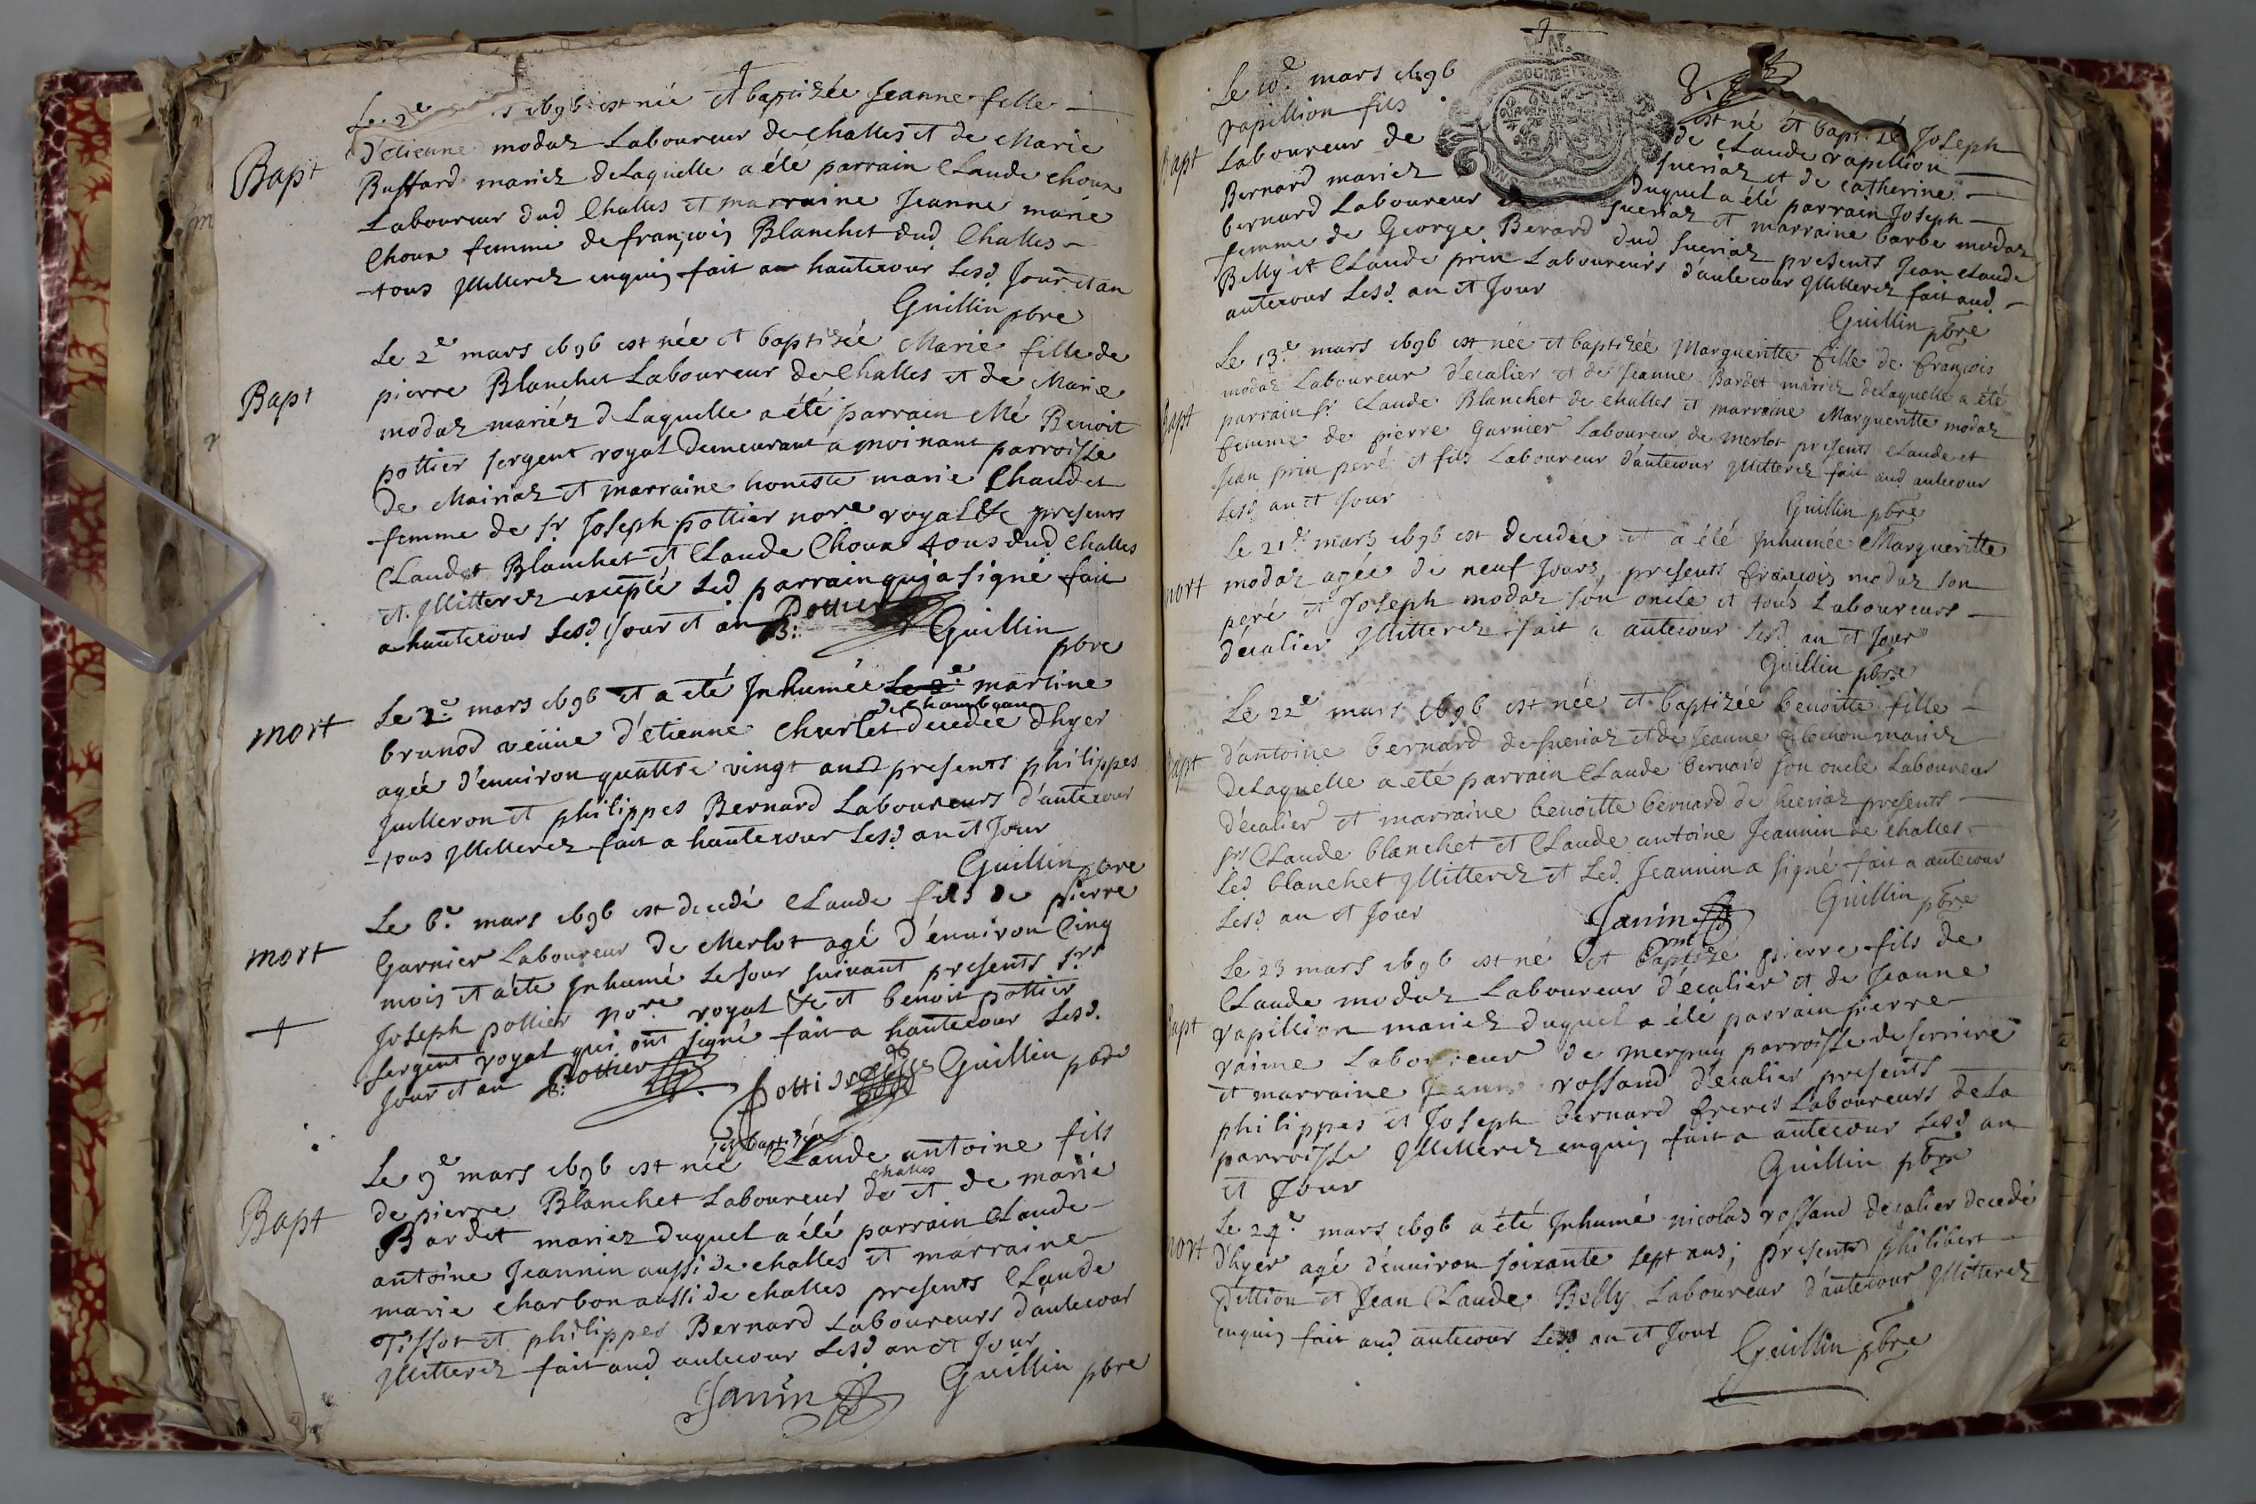 Bapt
Le 2e 1696 est née et baptizée Jeanne fille
d'etienne modaz Laboureur de Challes et de Marie
Buffard mariez de Laquelle a été parrain Claude choux
Laboureur dud Challes et marraine Jeanne marie
Choux femme de françois Blanchet dud Challes
tous Jllitterez enquis fait a hautecour Lesd Jour et an
Guillin pbre
Bapt
Le 2e mars 1696 est née et baptizée Marie fille de
pierre Blanchet Laboureur de Challes et de Marie
modaz mariéz de Laquelle a été parrain Me Benoit
pottier sergent royal Demeurant a moinant parroisse
De Mairiaz et marraine honeste marie Chaudet
femme de sr Joseph pottier nore royal &c presents
Claude Blanchet et Claude Choux tous dud Challes
et Jllitterez excepté Led parrain qui a signé fait
a hautecour Lesd Jour et an
B: Pottier
Guillin pbre
mort
Le 2e mars 1696 et a eté Jnhumée Le 2e martine
brunod veüue d'étienne Charlet decedée d'hyer
agée d'enuiron quattre vingt ans presents philippes
Juilleron et philippes Bernard Laboureurs d'autecour
tous Jllitterez fait a hautecour Lesd an et Jour
Guillin pbre
mort
Le 6e mars 1696 est decedé Claude fils de pierre
Garnier Laboureur de Merlot agé d'énuiron Cinq
mois et a été Jnhumé Le Jour suivant presents srs
Joseph pottier nore royal &c et benoit pottier
sergent royal qui ont signé fait a hautecour Lesd
Jour et an
B: Pottier
Pottier
Guillin pbre
Bapt
et baptizé
Le 9e mars 1696 est né Claude antoine fils
challes
de pierre Blanchet Laboureur de et de marie
Bardet mariez Duquel a été parrain Claude
antoine Jeannin aussi de challes et marraine
marie Charbon aussi de challes presents Claude
Tissot et philippes Bernard Laboureurs d'autecour
Jllitterez fait aud autecour Lesd an et Jour
Janin
Guillin pbre
Bapt
Le 10e mars 1696 est né et baptizé Joseph
rapillion fils de Claude rapillion
Laboureur de sueriaz et de catherine
Bernard mariez Duquel a été parrain Joseph
bernard Laboureur de sueriaz et marraine barbe modaz
femme de George Berard dud sueriaz presents Jean Claude
Belly et Claude prin Laboureurs d'autecour Jllitterez fait aud
autecour Lesd an et Jour
Guillin pbre
Bapt
Le 13e mars 1696 est née et baptizée Margueritte fille de françois
modaz Laboureur d'ecalier et de Jeanne Bardet mariez de Laquelle a été
parrain sr Claude Blanchet de challes et marraine Margueritte modaz
femme de pierre Garnier Laboureur de merlot presents Claude et
Jean prin peré et fils Laboureur d'autecour Jllitterez fait aud autecour
Lesd an et Jour
Guillin pbre
mort
Le 21e mars 1696 est decedée et a été Jnhumée Margueritte
modaz agée de neuf Jours presents françois modaz son
peré et Joseph modaz son oncle et tous Laboureurs
d'ecalier Jllitterez fait a autecour Lesd an et Jour
Guillin pbre
Bapt
Le 22e mars 1696 est née et baptizée benoitte fille
d'antoine bernard de sueriaz et de Jeanne mariez
de Laquelle a eté parrain Claude bernard son oncle Laboureur
d'écalier et marraine benoitte bernard de sueriaz presents
srs Claude blanchet et Claude antoine Jeannin de challes
Led blanchet Jllitterez et Led Jeannin a signé fait a autecour
Lesd an et Jour
Janin
Guillin pbre
Bapt
Le 23 mars 1696 est né et baptizé pierre fils de
Claude modaz Laboureur d'écalier et de Jeanne
rapillion mariez duquel a été parrain pierre
raime Laboureur de merpuy parroisse de serriere
et marraine Jeanne rossand d'ecalier presents
philippes et Joseph bernard freres Laboureurs de La
parroisse Jllitterez enquis fait a autecour Lesd an
et Jour
Guillin pbre
mort
Le 24e mars 1696 a été Jnhumé nicolas rossand d'ecalier decedé
d'hyer agé d'énuiron soixante sept ans; presents philibert
pittion et Jean Claude Belly Laboureur d'autecour Jllitterez
enquis fait aud autecour Lesd an et Jour
Guillin pbre